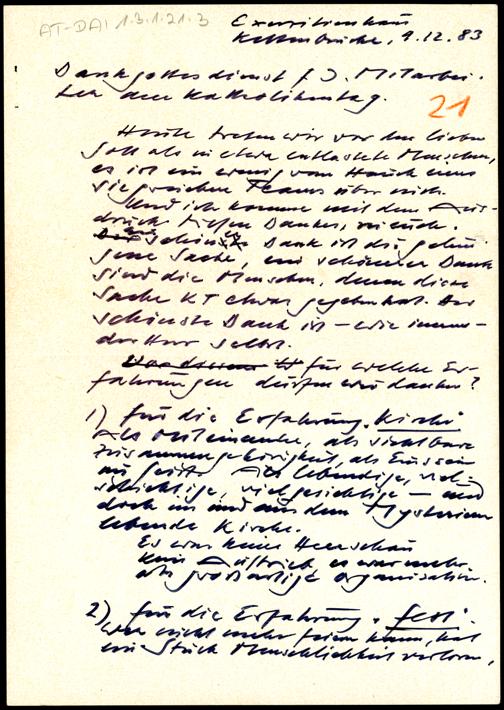 AT-DAI 1.3.1.21.3
Exerzitienhaus
Kettenbrücke, 9.12.83
Dankgottesdienst f. d. Mitarbei-
ter den Katholikentag.
21
Heute treten wir vor den lieben
Gott als in etwa entlastete Menschen,
es ist ein wenig vom Hauch eines
siegreichen Teams über mich.
Und ich komme mit dem Aus-
druck tiefen Dankes, zu euch.
schöner Dank ist die gelun
gene Sache, ein schönerer Dank
sind die Menschen, denen diese
Sache KT etwas gegeben hat. Der
schönste Dank ist – wie immer –
der Herr selbst.
für welche Er-
fahrungen dürfen wir danken?
1) für die Erfahrung „Kirche"
Als Miteinander, als sichtbare
Zusammengehörigkeit, als Eins sein
im Geiste. Als lebendige, viel-
schichtige, vielgesichtige – und
doch in und aus dem Mysterium
lebende Kirche.
Es war keine Heerschau
kein Auftrieb, es war mehr
als großartige Organisation.
2) für die Erfahrung „Fest".
wer nicht mehr feiern kann, hat
ein Stück Menschlichkeit verloren,